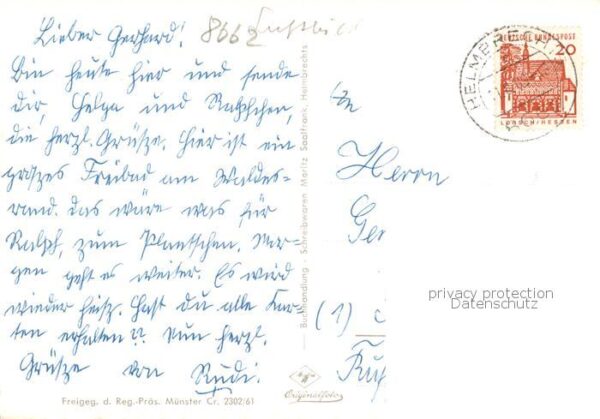 Lieber Gerhard!
8662 Luftbild
Bin heute hier und sende
dir, Helga und Ralphchen,
die herzl. Grüße. Hier ist ein
großes Freibad am Waldes-
rand. das wäre was für
Ralph, zum Plantschen. Mor-
gen geht es weiter. Es wird
wieder heiß. Hast du alle Kar-
ten erhalten?? Nun herzl.
Grüsze von Rudi.
Freigeg. d. Reg.-Präs. Münster Cr. 2302/61
Buchhandlung - Schreibwaren Moritz Saalfrank, Helmbrechts
Originalfoto
HELMBRE
DEUTSCHE BUNDESPOST
20
LORSCH/HESSEN
Herrn
Ge
(1)
privacy protection
Datenschutz